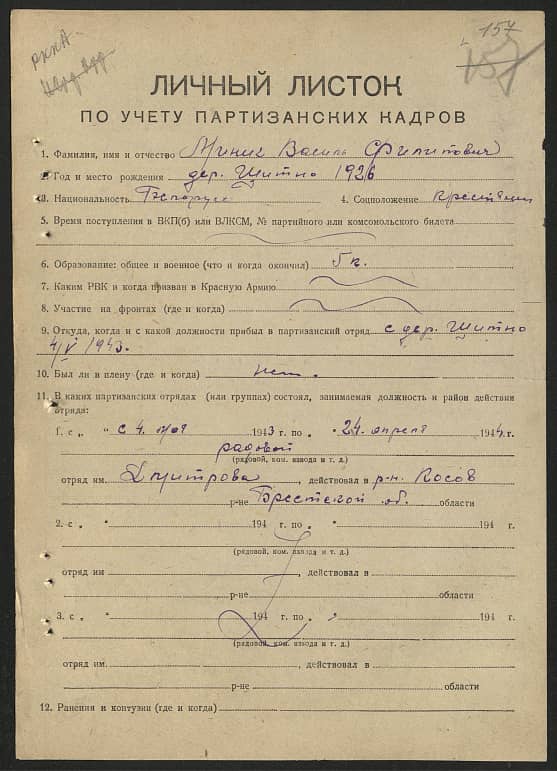 РККА
157
157
ЛИЧНЫЙ ЛИСТОК
ПО УЧЕТУ ПАРТИЗАНСКИХ КАДРОВ
1. Фамилия, имя и отчество Миник Василь Филипович
2. Год и место рождения дер. Шитно 1926
3. Национальность Белорус 4. Соцположение крестьянин
5. Время поступления в ВКП(б) или ВЛКСМ, № партийного или комсомольского билета
6. Образование: общее и военное (что и когда окончил) 5 к.
7. Каким РВК и когда призван в Красную Армию
8. Участие на фронтах (где и когда)
9. Откуда, когда и с какой должности прибыл в партизанский отряд с дер. Шитно
4/V 1943.
10. Был ли в плену (где и когда) нет.
11. В каких партизанских отрядах (или группах) состоял, занимаемая должность и район действия
отряда:
1. с „ “ с 4 мая 1943 г. по „ 24 апреля 1944 г.
радовой
(рядовой, ком. взвода и т. д.)
отряд им. Дмитрова, действовал в р-н. Косов
р-не Брестской об. области
2. с „ “ 194 г. по „ “ 194 г.
(рядовой, ком. взвода и т. д.)
отряд им , действовал в
р-не области
3. с „ “ 194 г. по „ 194 г.
(рядовой, ком. взвода и т. д.)
отряд им. , действовал в
р-не области
12. Ранения и контузии (где и когда)